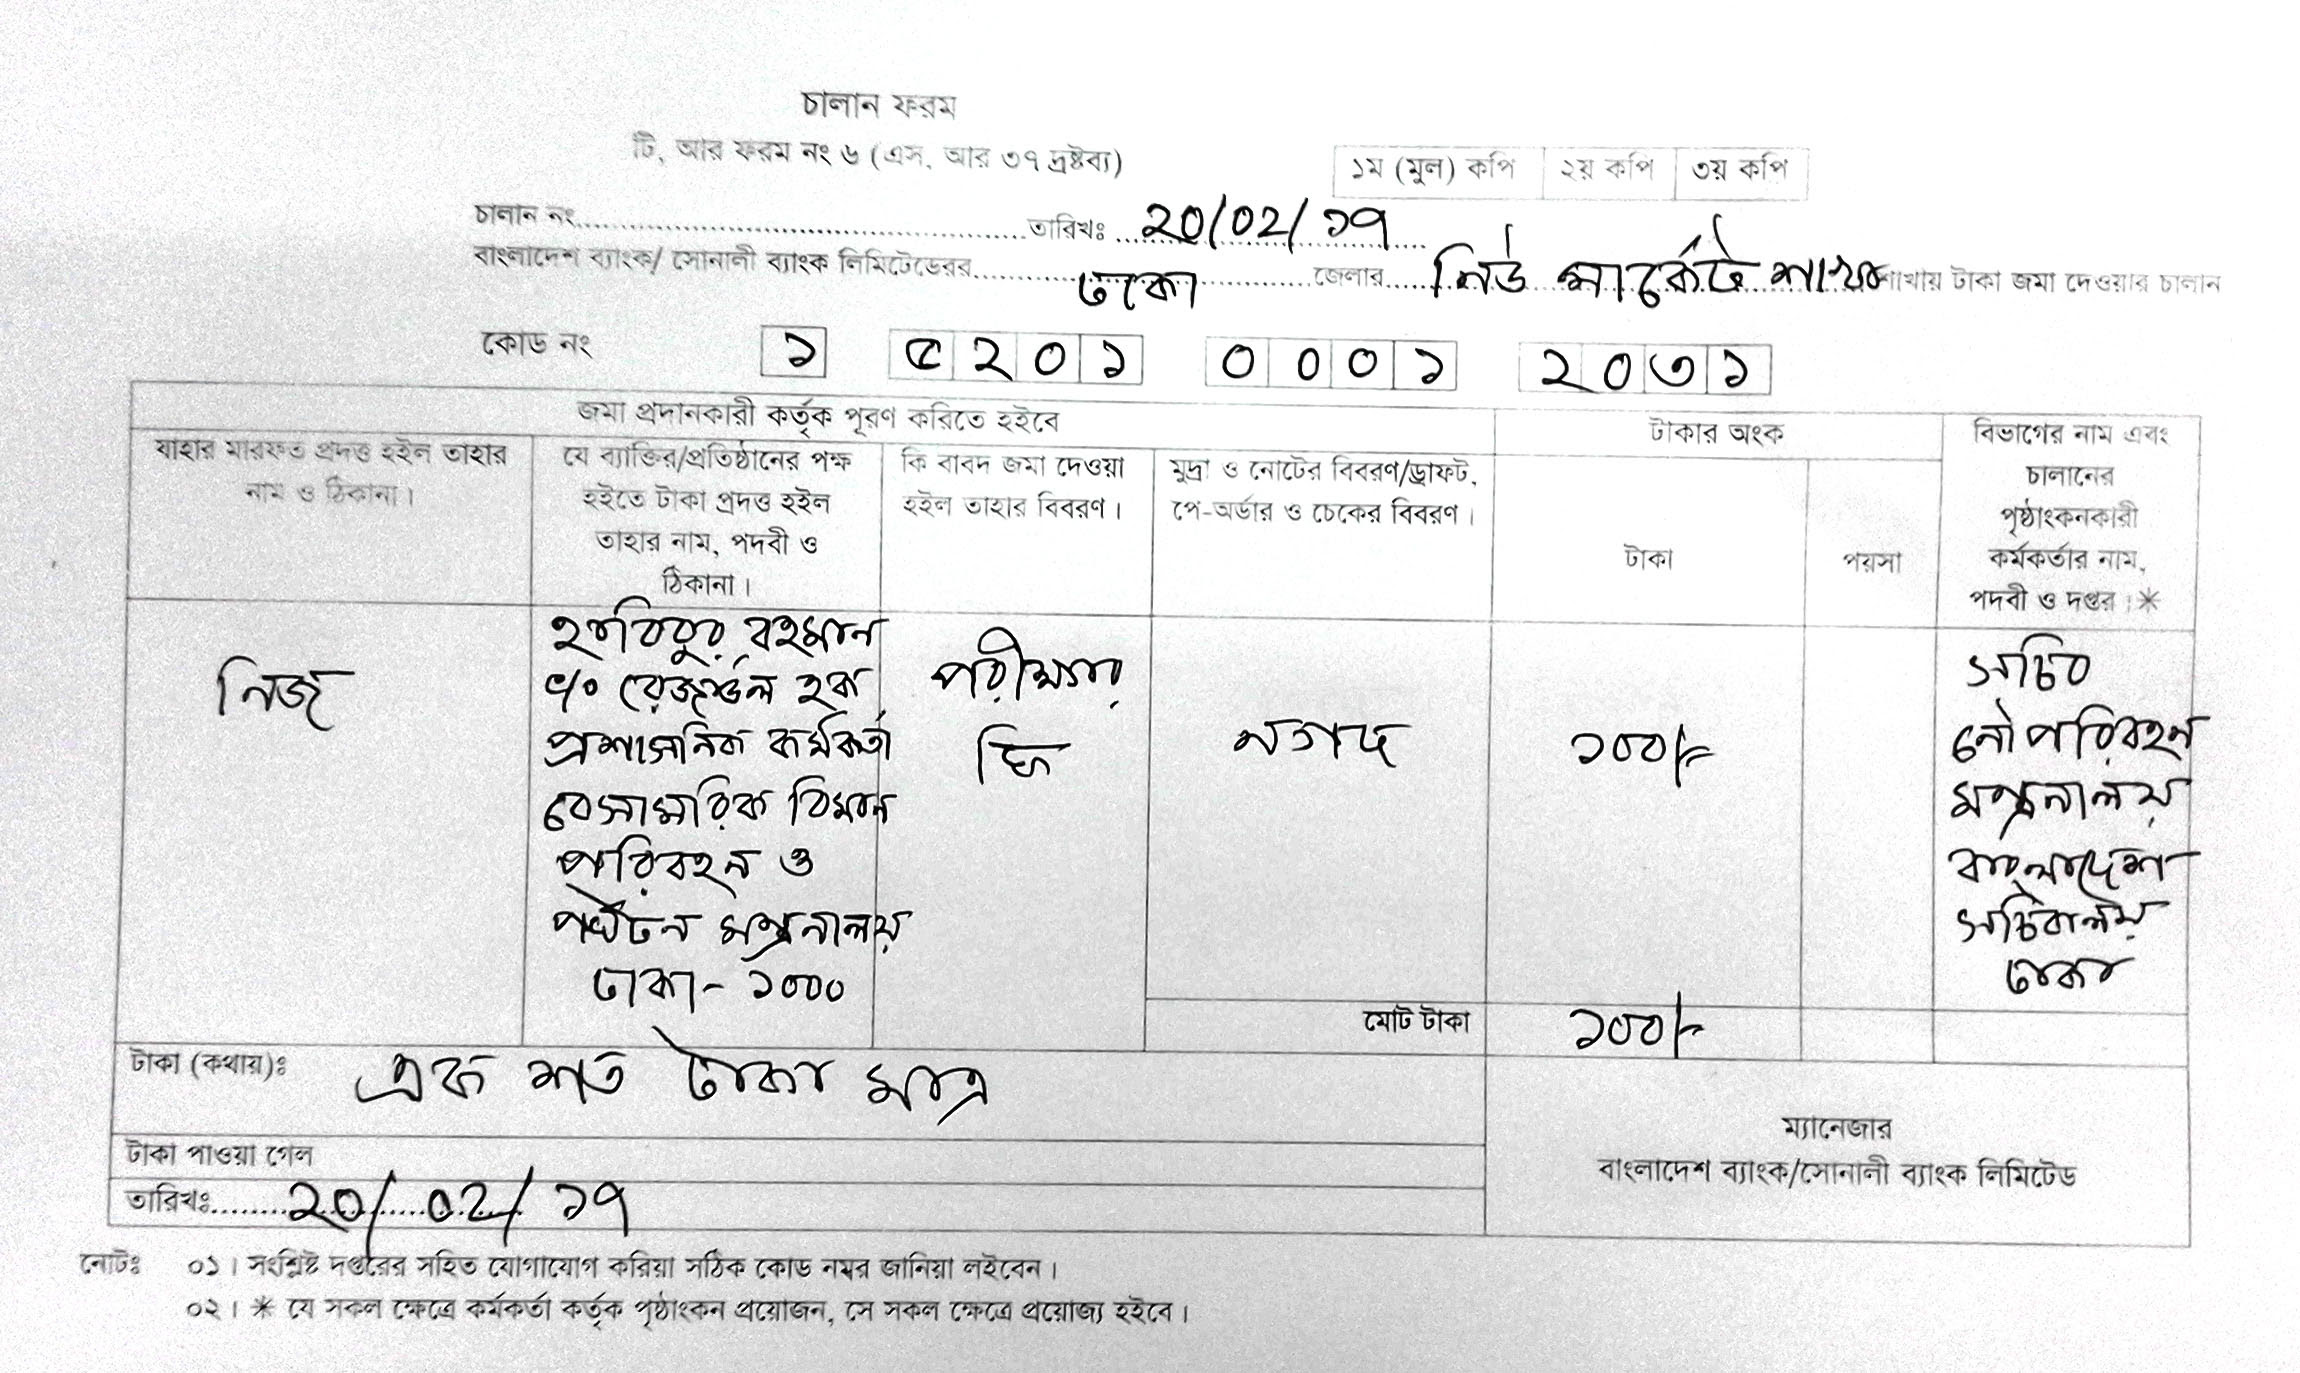 চালান ফরম
টি, আর ফরম নং ৬ (এস, আর ৩৭ দ্রষ্টব্য)
১ম (মুল) কপি ২য় কপি ৩য় কপি
চালান নং............................................তারিখঃ ...২০/০২/১৭
বাংলাদেশ ব্যাংক/ সোনালী ব্যাংক লিমিটেডেরর..........ঢাকা..........জেলার.....নিউ মার্কেট শাখা শাখায় টাকা জমা দেওয়ার চালান
কোড নং ১ ৫২০১ ০০০১ ২০৩১
জমা প্রদানকারী কর্তৃক পূরণ করিতে হইবে
টাকার অংক
যাহার মারফত প্রদত্ত হইল তাহার
নাম ও ঠিকানা।
যে ব্যাক্তির/প্রতিষ্ঠানের পক্ষ
হইতে টাকা প্রদত্ত হইল
তাহার নাম, পদবী ও
ঠিকানা।
কি বাবদ জমা দেওয়া
হইল তাহার বিবরণ।
মুদ্রা ও নোটের বিবরণ/ড্রাফট,
পে-অর্ডার ও চেকের বিবরণ।
টাকা
পয়সা
বিভাগের নাম এবং
চালানের
পৃষ্ঠাংকনকারী
কর্মকর্তার নাম,
পদবী ও দপ্তর।*
নিজ
হাবিবুর রহমান
c/o রেজাউল হক
প্রশাসনিক কর্মকর্তা
বেসামরিক বিমান
পরিবহন ও
পর্যটন মন্ত্রনালয়
ঢাকা- ১০০০
পরীক্ষার
ফি
নগদ
১০০/-
সচিব
নৌপরিবহন
মন্ত্রনালয়
বাংলাদেশ
সচিবালয়
ঢাকা
মোট টাকা ১০০/-
টাকা (কথায়)ঃ এক শত টাকা মাত্র
টাকা পাওয়া গেল
তারিখঃ........২০/০২/১৭
ম্যানেজার
বাংলাদেশ ব্যাংক/সোনালী ব্যাংক লিমিটেড
নোটঃ ০১। সংশ্লিষ্ট দপ্তরের সহিত যোগাযোগ করিয়া সঠিক কোড নম্বর জানিয়া লইবেন।
০২। * যে সকল ক্ষেত্রে কর্মকর্তা কর্তৃক পৃষ্ঠাংকন প্রয়োজন, সে সকল ক্ষেত্রে প্রয়োজ্য হইবে।